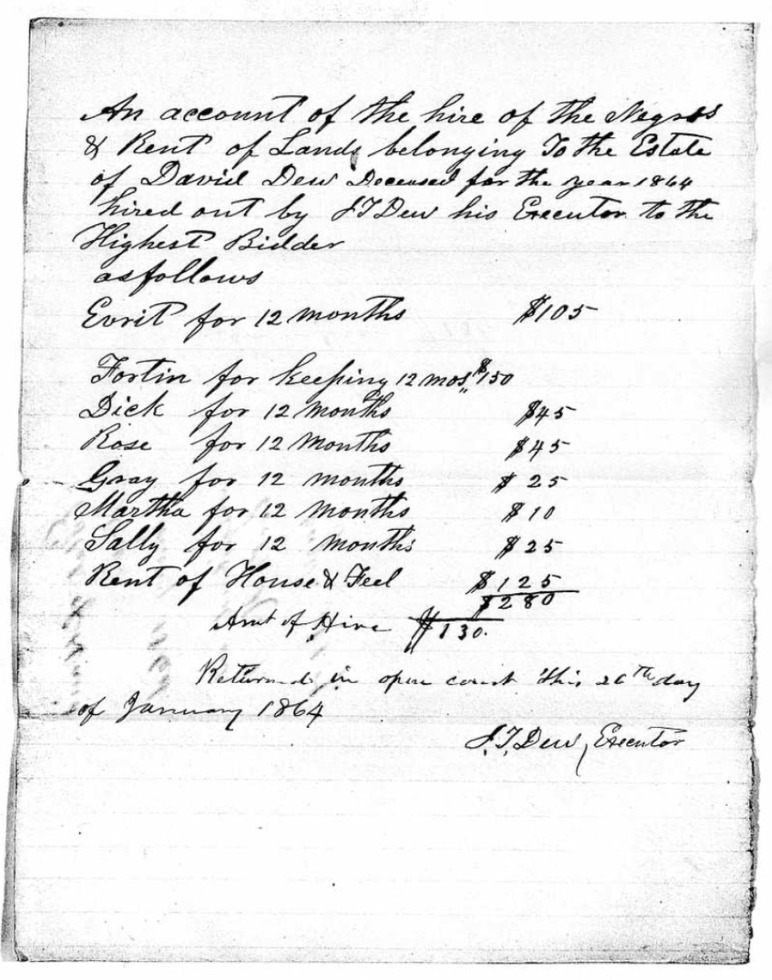 An account of the hire of the Negros
& Rent of Lands belonging To the Estate
of David Dew Deceased for the year 1864
hired out by J T Dew his Executor to the
Highest Bidder
as follows
Evrit for 12 months $105
Fortin for keeping 12 mos, $150
Dick for 12 months $45
Rose for 12 Months $45
Gray for 12 months $25
Martha for 12 months $10
Sally for 12 months $25
Rent of House & Feel $125
$280
Amt of Hire $130.
Returned in open court this 26th day
of January 1864
J. T. Dew, Executor